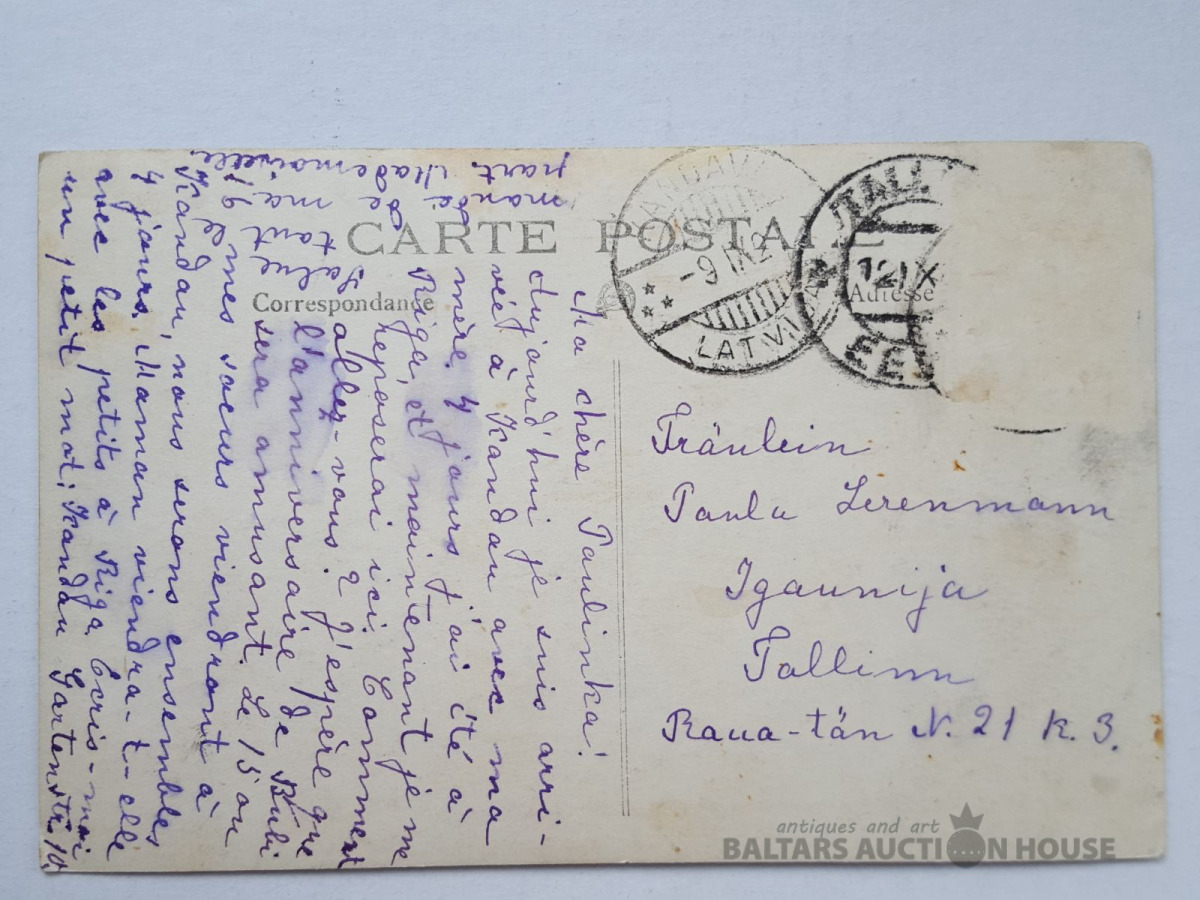 CARTE POSTALE
Correspondance
Adresse
KANDAVA
-9 IX 2
LATVIJA
TALL
12 IX
EES
Ma chère Paulinka!
Aujourd'hui je suis arri-
vée à Kandau avec ma
mère. 4 jours j'ai été à
Riga, et maintenant je me
reposerai ici. Comment
allez-vous? J'espère que
l'anniversaire de Bubi
sera amusant. Le 15 ou
16 mes soeurs viendront à
Kandau, nous serons ensembles
4 jours, Maman viendra-t-elle
avec les petits à Riga. Ecris-moi
un petit mot; Kandau Gartenstr. 10.
Salue tante
de ma
part. Mademoiselle
Fräulein
Paula Lerenmann
Igaunija
Tallinn
Raua-tän N. 21 k. 3.
antiques and art
BALTARS AUCTION HOUSE